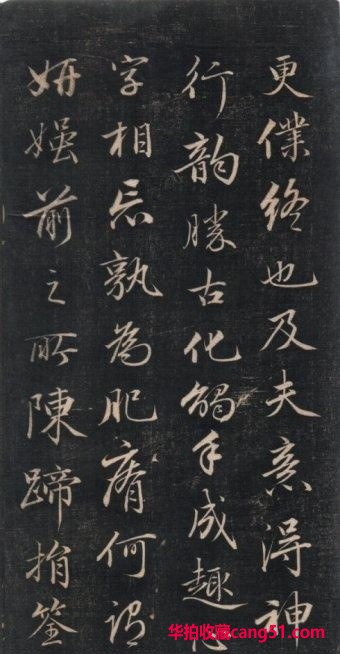 更僕終也及夫意得神
行韵勝古化觸手成趣心
字相忘孰為肥瘠何謂
妍媸前之所陳蹄捐筌
华拍收藏cang51.com